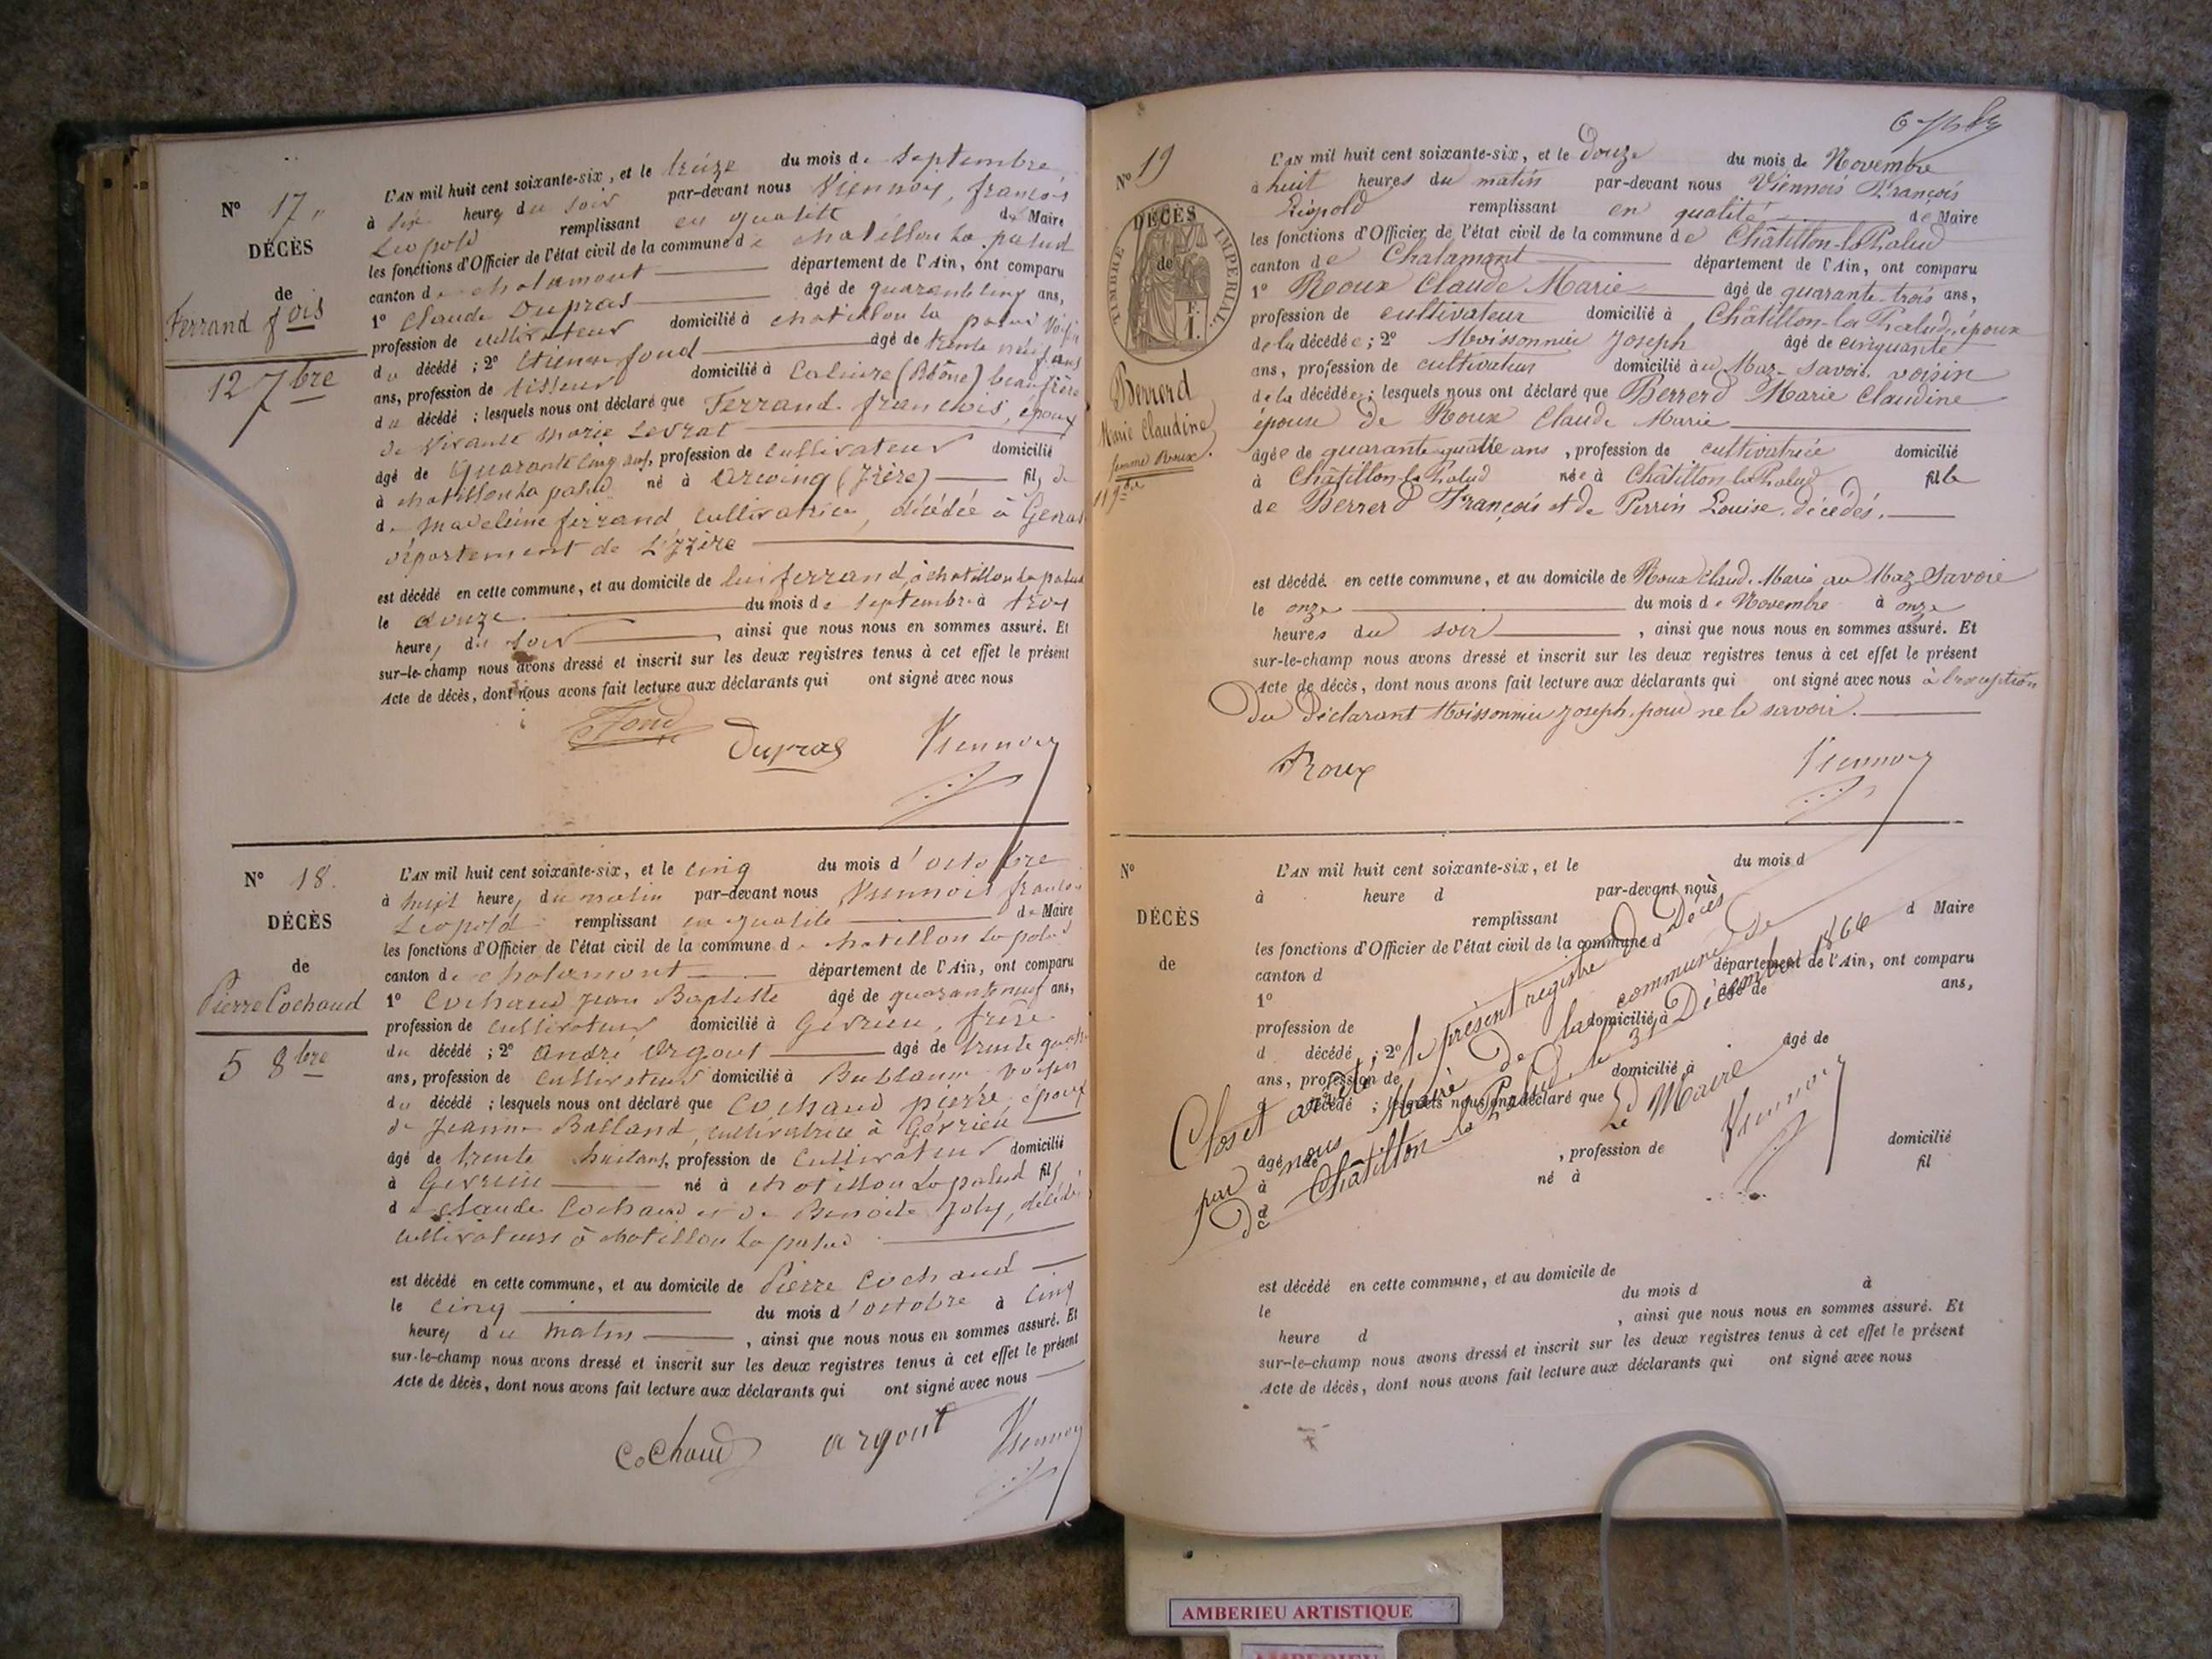 N° 17
DÉCÈS
de
Ferrand fois
12 7bre
L'AN mil huit cent soixante-six, et le treize du mois de septembre
à six heures du soir par-devant nous Viennois, françois
Leopold remplissant en qualité de Maire
les fonctions d'Officier de l'état civil de la commune de chatillon la palud
canton de chalamont département de l'Ain, ont comparu
1° Claude Dupras âgé de quarante cinq ans,
profession de cultivateur domicilié à chatillon la palud voisin
du décédé ; 2° Etienne fond âgé de trente neuf ans
ans, profession de tisseur domicilié à Caluire (Rhône) beau frère
du décédé ; lesquels nous ont déclaré que Ferrand françois, époux
de vivante marie Levrat
âgé de Quarante cinq ans, profession de cultivateur domicilié
à chatillon la palud né à (Izère) fils de
de Madeleine ferrand, cultivatrice, décédée à
département de L'Izère
est décédé en cette commune, et au domicile de lui ferrand, à chatillon la palud
le douze du mois de septembre à trois
heures du soir, ainsi que nous nous en sommes assuré. Et
sur-le-champ nous avons dressé et inscrit sur les deux registres tenus à cet effet le présent
Acte de décès, dont nous avons fait lecture aux déclarants qui ont signé avec nous
Fond Dupras Viennois
N° 18.
DÉCÈS
de
Pierre Cochaud
5 8bre
L'AN mil huit cent soixante-six, et le cinq du mois d'octobre
à huit heures du matin par-devant nous Viennois françois
Leopold remplissant en qualité de Maire
les fonctions d'Officier de l'état civil de la commune de chatillon la palud
canton de chalamont département de l'Ain, ont comparu
1° Cochaud Jean Baptiste âgé de quarante neuf ans,
profession de cultivateur domicilié à Gévrieu, frère
du décédé ; 2° André Argout âgé de trente quatre
ans, profession de cultivateur domicilié à Bublanne voisin
du décédé ; lesquels nous ont déclaré que Cochaud pierre, époux
de Jeanne Balland, cultivatrice à Gévrieu
âgé de trente huit ans, profession de cultivateur domicilié
à Gevrieu né à chatillon la palud fils
de claude Cochaud et de Benoite Joly, décédés
cultivateurs à chatillon la palud
est décédé en cette commune, et au domicile de Pierre Cochaud
le cinq du mois d'octobre à cinq
heures du matin, ainsi que nous nous en sommes assuré. Et
sur-le-champ nous avons dressé et inscrit sur les deux registres tenus à cet effet le présent
Acte de décès, dont nous avons fait lecture aux déclarants qui ont signé avec nous
Cochaud argout Viennois
N° 19
DÉCÈS
de
TIMBRE IMPERIAL
1 F.
Berrerd
Marie Claudine
femme Roux.
11 9bre
L'AN mil huit cent soixante-six, et le Douze du mois de Novembre
à huit heures du matin par-devant nous Viennois François
Léopold remplissant en qualité de Maire
les fonctions d'Officier de l'état civil de la commune de Châtillon-la-Palud
canton de Chalamont département de l'Ain, ont comparu
1° Roux Claude Marie âgé de quarante-trois ans,
profession de cultivateur domicilié à Châtillon-la-Palud, époux
de la décédée ; 2° Moissonnier Joseph âgé de cinquante
ans, profession de cultivateur domicilié au Maz-Savoie voisin
de la décédée ; lesquels nous ont déclaré que Berrerd Marie Claudine
épouse de Roux Claude Marie
âgée de quarante-quatre ans, profession de cultivatrice domicilié
à Châtillon-la-Palud née à Châtillon-la-Palud fille
de Berrerd François et de Perrin Louise, décédés.
est décédé en cette commune, et au domicile de Roux Claude Marie au Maz Savoie
le onze du mois de Novembre à onze
heures du soir, ainsi que nous nous en sommes assuré. Et
sur-le-champ nous avons dressé et inscrit sur les deux registres tenus à cet effet le présent
Acte de décès, dont nous avons fait lecture aux déclarants qui ont signé avec nous à l'exception
du déclarant Moissonnier Joseph, pour ne le savoir.
Roux Viennois
N°
DÉCÈS
de
L'AN mil huit cent soixante-six, et le du mois d
à heure d par-devant nous
remplissant d Maire
les fonctions d'Officier de l'état civil de la commune d
canton d département de l'Ain, ont comparu
1° âgé de ans,
profession de domicilié à
d décédé ; 2° âgé de
ans, profession de domicilié à
d décédé ; lesquels nous ont déclaré que
âgé de , profession de domicilié
à né à fil
d
Clos et arrêté, le présent registre de Décès
par nous Maire de la commune de
de Châtillon la Palud, le 31 Décembre 1866
Le Maire
Viennois
est décédé en cette commune, et au domicile de
le du mois d à
heure d , ainsi que nous nous en sommes assuré. Et
sur-le-champ nous avons dressé et inscrit sur les deux registres tenus à cet effet le présent
Acte de décès, dont nous avons fait lecture aux déclarants qui ont signé avec nous
AMBERIEU ARTISTIQUE
AMBERIEU